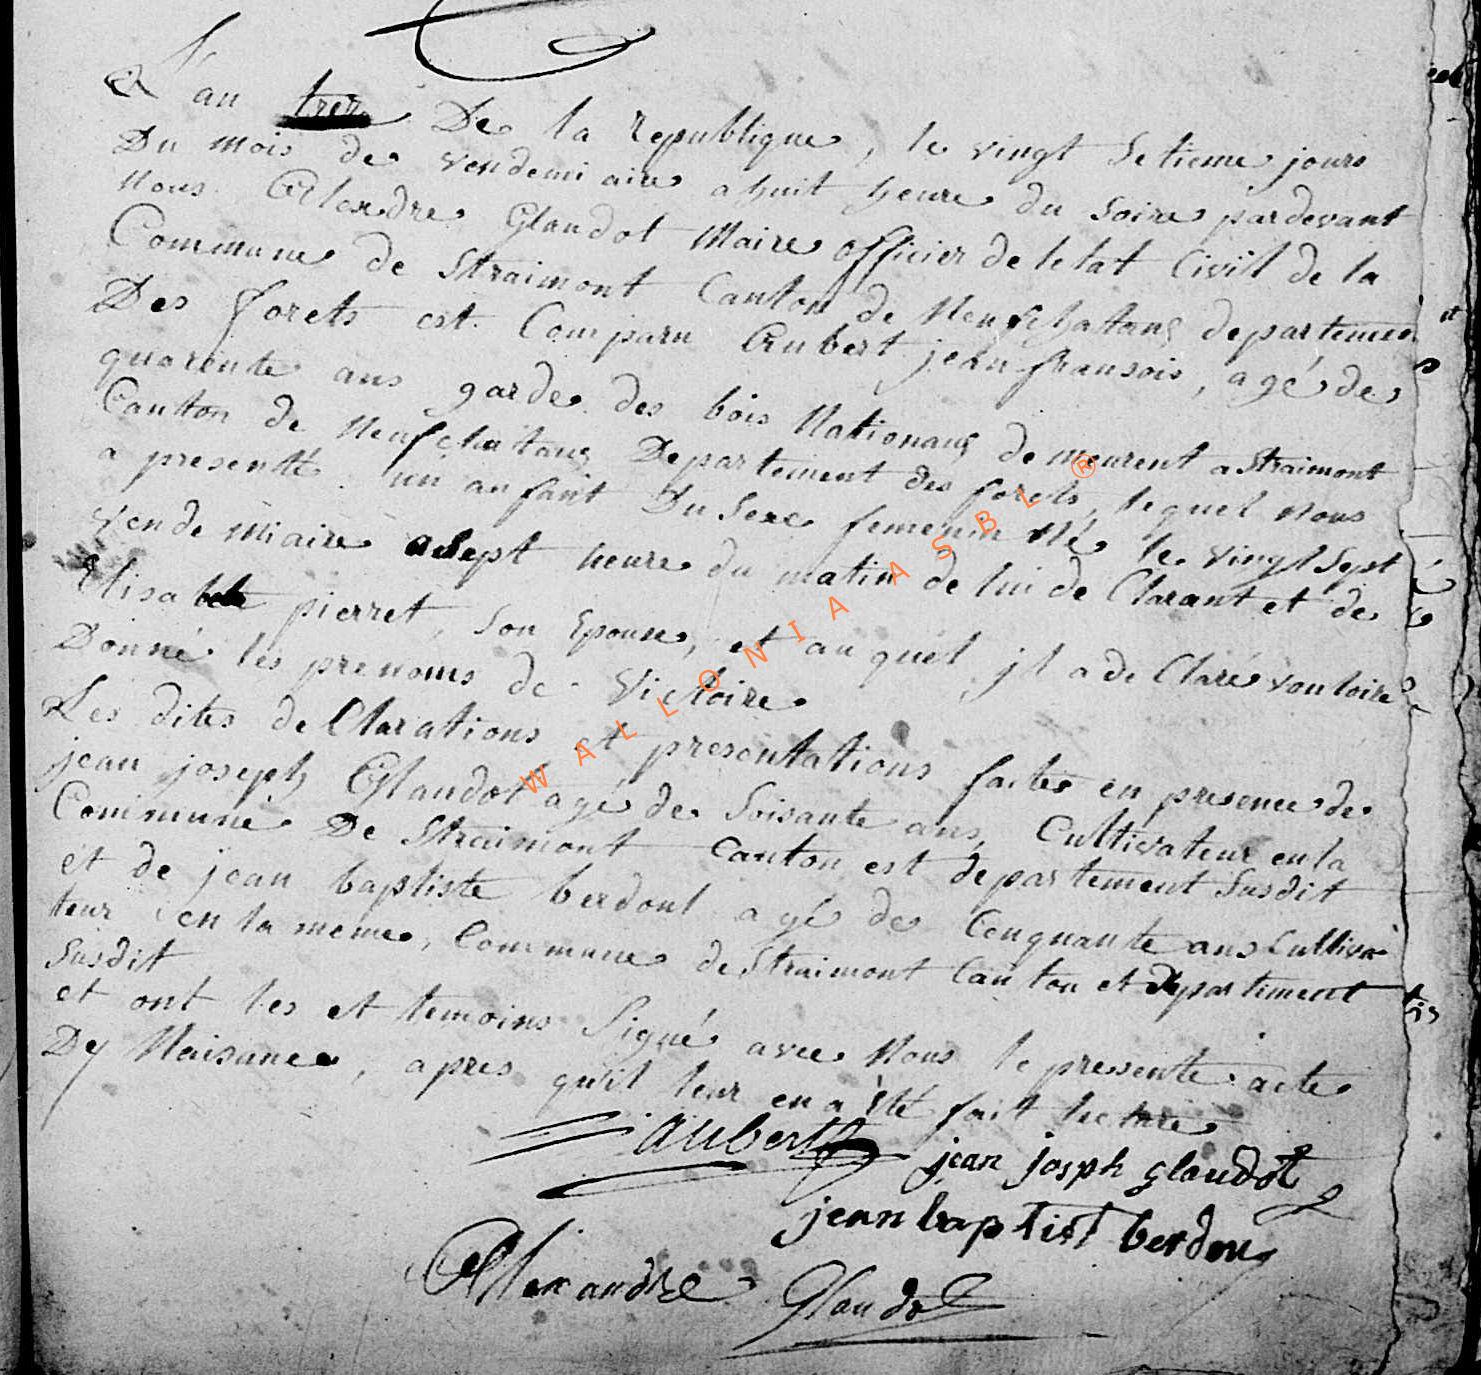 L'an trez De la republique, le vingt Setieme jours
Du mois de vendemiaire a huit heure du Soire pardevant
Nous Alexdre Glaudot Maire officier de letat Civil de la
Commune de Straimont Canton de Neufchatang departemen
Des forets est Comparu Aubert jean fransois, agé de
quarente ans garde des bois Nationaux demeurent a Straimont
Canton de Neufchatang Departement des forets, lequel Nous
a presenté un anfant Du Sexe femenin Né le vingt Sept
vendemiaire a Sept heure du matin de lui de Clarant et de
Elisabete pierret, Son Epouse, et au quel jl a de Claré vouloire
Donné les prenoms de Victoire
Les dites de Clarations et presentations faites en presence de
jean joseph Glaudot agé de Soisante ans, Cultivateur en la
Commune De Straimont Canton est departement Susdit
et de jean baptiste berdout agé de Cenquante ans Cultiva
teur en la meme, Commune de Straimont Canton et departiment
Susdit
et ont les et temoins Signé avec Nous le pressente acte
Dy Naisance, apres qu'il leur en a été fait lecture
aubert
jean josph glaudot
jean baptist berdou
Alexandre Glaudot
WALLONIA ASBL ®